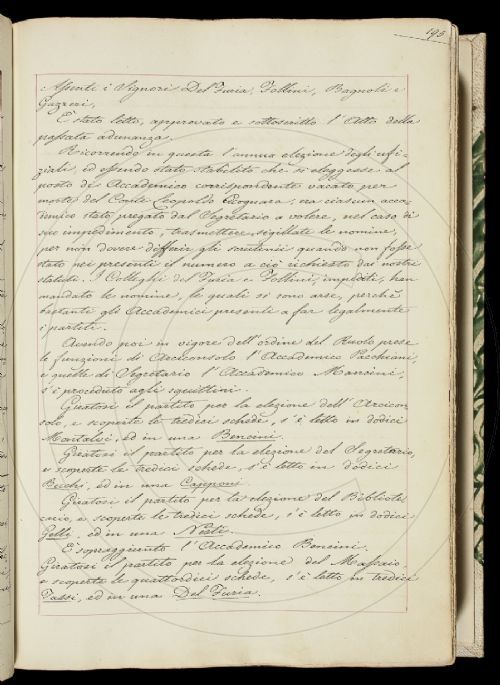 193
Assenti i Signori Del Furia, Follini, Bagnoli e
Gazzeri.
È stato letto, approvato e sottoscritto l'Atto della
passata adunanza.
Ricorrendo in questa l'annua elezione degli uffi-
ziali, ed essendo stato stabilito che si eleggesse al
posto di Accademico corrispondente vacato per
morte del Conte Leopoldo Cicognara; era ciascun acca-
demico stato pregato dal Segretario a volere, nel caso di
suo impedimento, trasmettere sigillate le nomine,
per non dovere differir gli scrutinii quando non fosse
stato nei presenti il numero a ciò richiesto dai nostri
statuti. I Colleghi del Furia e Follini, impediti, han
mandato le nomine, le quali si sono arse, perchè
bastante gli Accademici presenti a far legalmente
i partiti.
Avendo poi in vigore dell'ordine del Ruolo prese
le funzioni di Arciconsolo l'Accademico Pecchioni,
e quelle di Segretario l'Accademico Mancini,
s'è proceduto agli squittini.
Giratosi il partito per la elezione dell'Arcicon-
solo, e scoperte le tredici schede, s'è letto in dodici
Montalvi, ed in una Bencini.
Giratosi il partito per la elezione del Segretario,
e scoperte le tredici schede, s'è letto in dodici
Becchi, ed in una Capponi.
Giratosi il partito per la elezione del Bibliote
cario, e scoperte le tredici schede, s'è letto in dodici
Gelli, ed in una Nesti.
È sopraggiunto l'Accademico Bencini.
Giratosi il partito per la elezione del Massaio,
e scoperte le quattordici schede, s'è letto in tredici
Tassi, ed in una Del Furia.